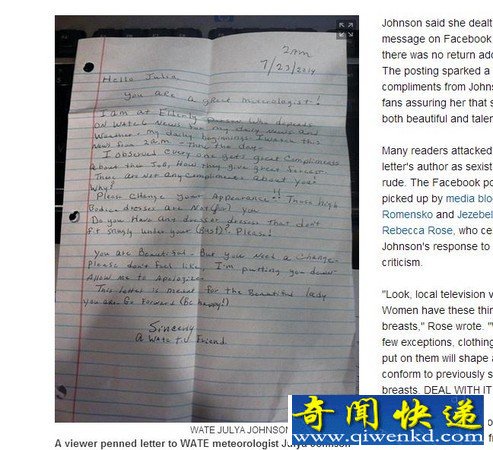 2am
7/23/2014
Hello Julia
You are a great meteorologist!
I am at Elderly Person Who depends
ON WATE 6 News for my daily News and
Weather - My daily beginnings I watch this
News from 2am - Thru the day -
I observed every one gets great Compliments
about their Job, How they give great Service.
There are not any Compliments about you!
Why?
Please Change Your Appearance!! Those high
Bodice dresses are Not for you
Do you Have any dresser dresses that don't
fit snugly under your (Bust)? Please!
You are Beautiful - But you need a Change -
Please don't feel like I'm putting you down -
Allow me to Apologize -
This letter is meant for the Beautiful lady
you are. Go Forward (be happy!)
Sincerely
A Wate T.V. Friend
WATE JULYA JOHNSON
A viewer penned letter to WATE meteorologist Julya Johnson
Johnson said she dealt
message on Facebook
there was no return add
The posting sparked a
compliments from Johns
fans assuring her that s
both beautiful and talen
Many readers attacked
letter's author as sexist
rude. The Facebook po
picked up by media blo
Romensko and Jezebel
Rebecca Rose, who ce
Johnson's response to
criticism.
"Look, local television v
Women have these thin
breasts," Rose wrote. "
few exceptions, clothing
put on them will shape a
conform to previously s
breasts. DEAL WITH IT
奇闻快递
www.qiwenkd.com